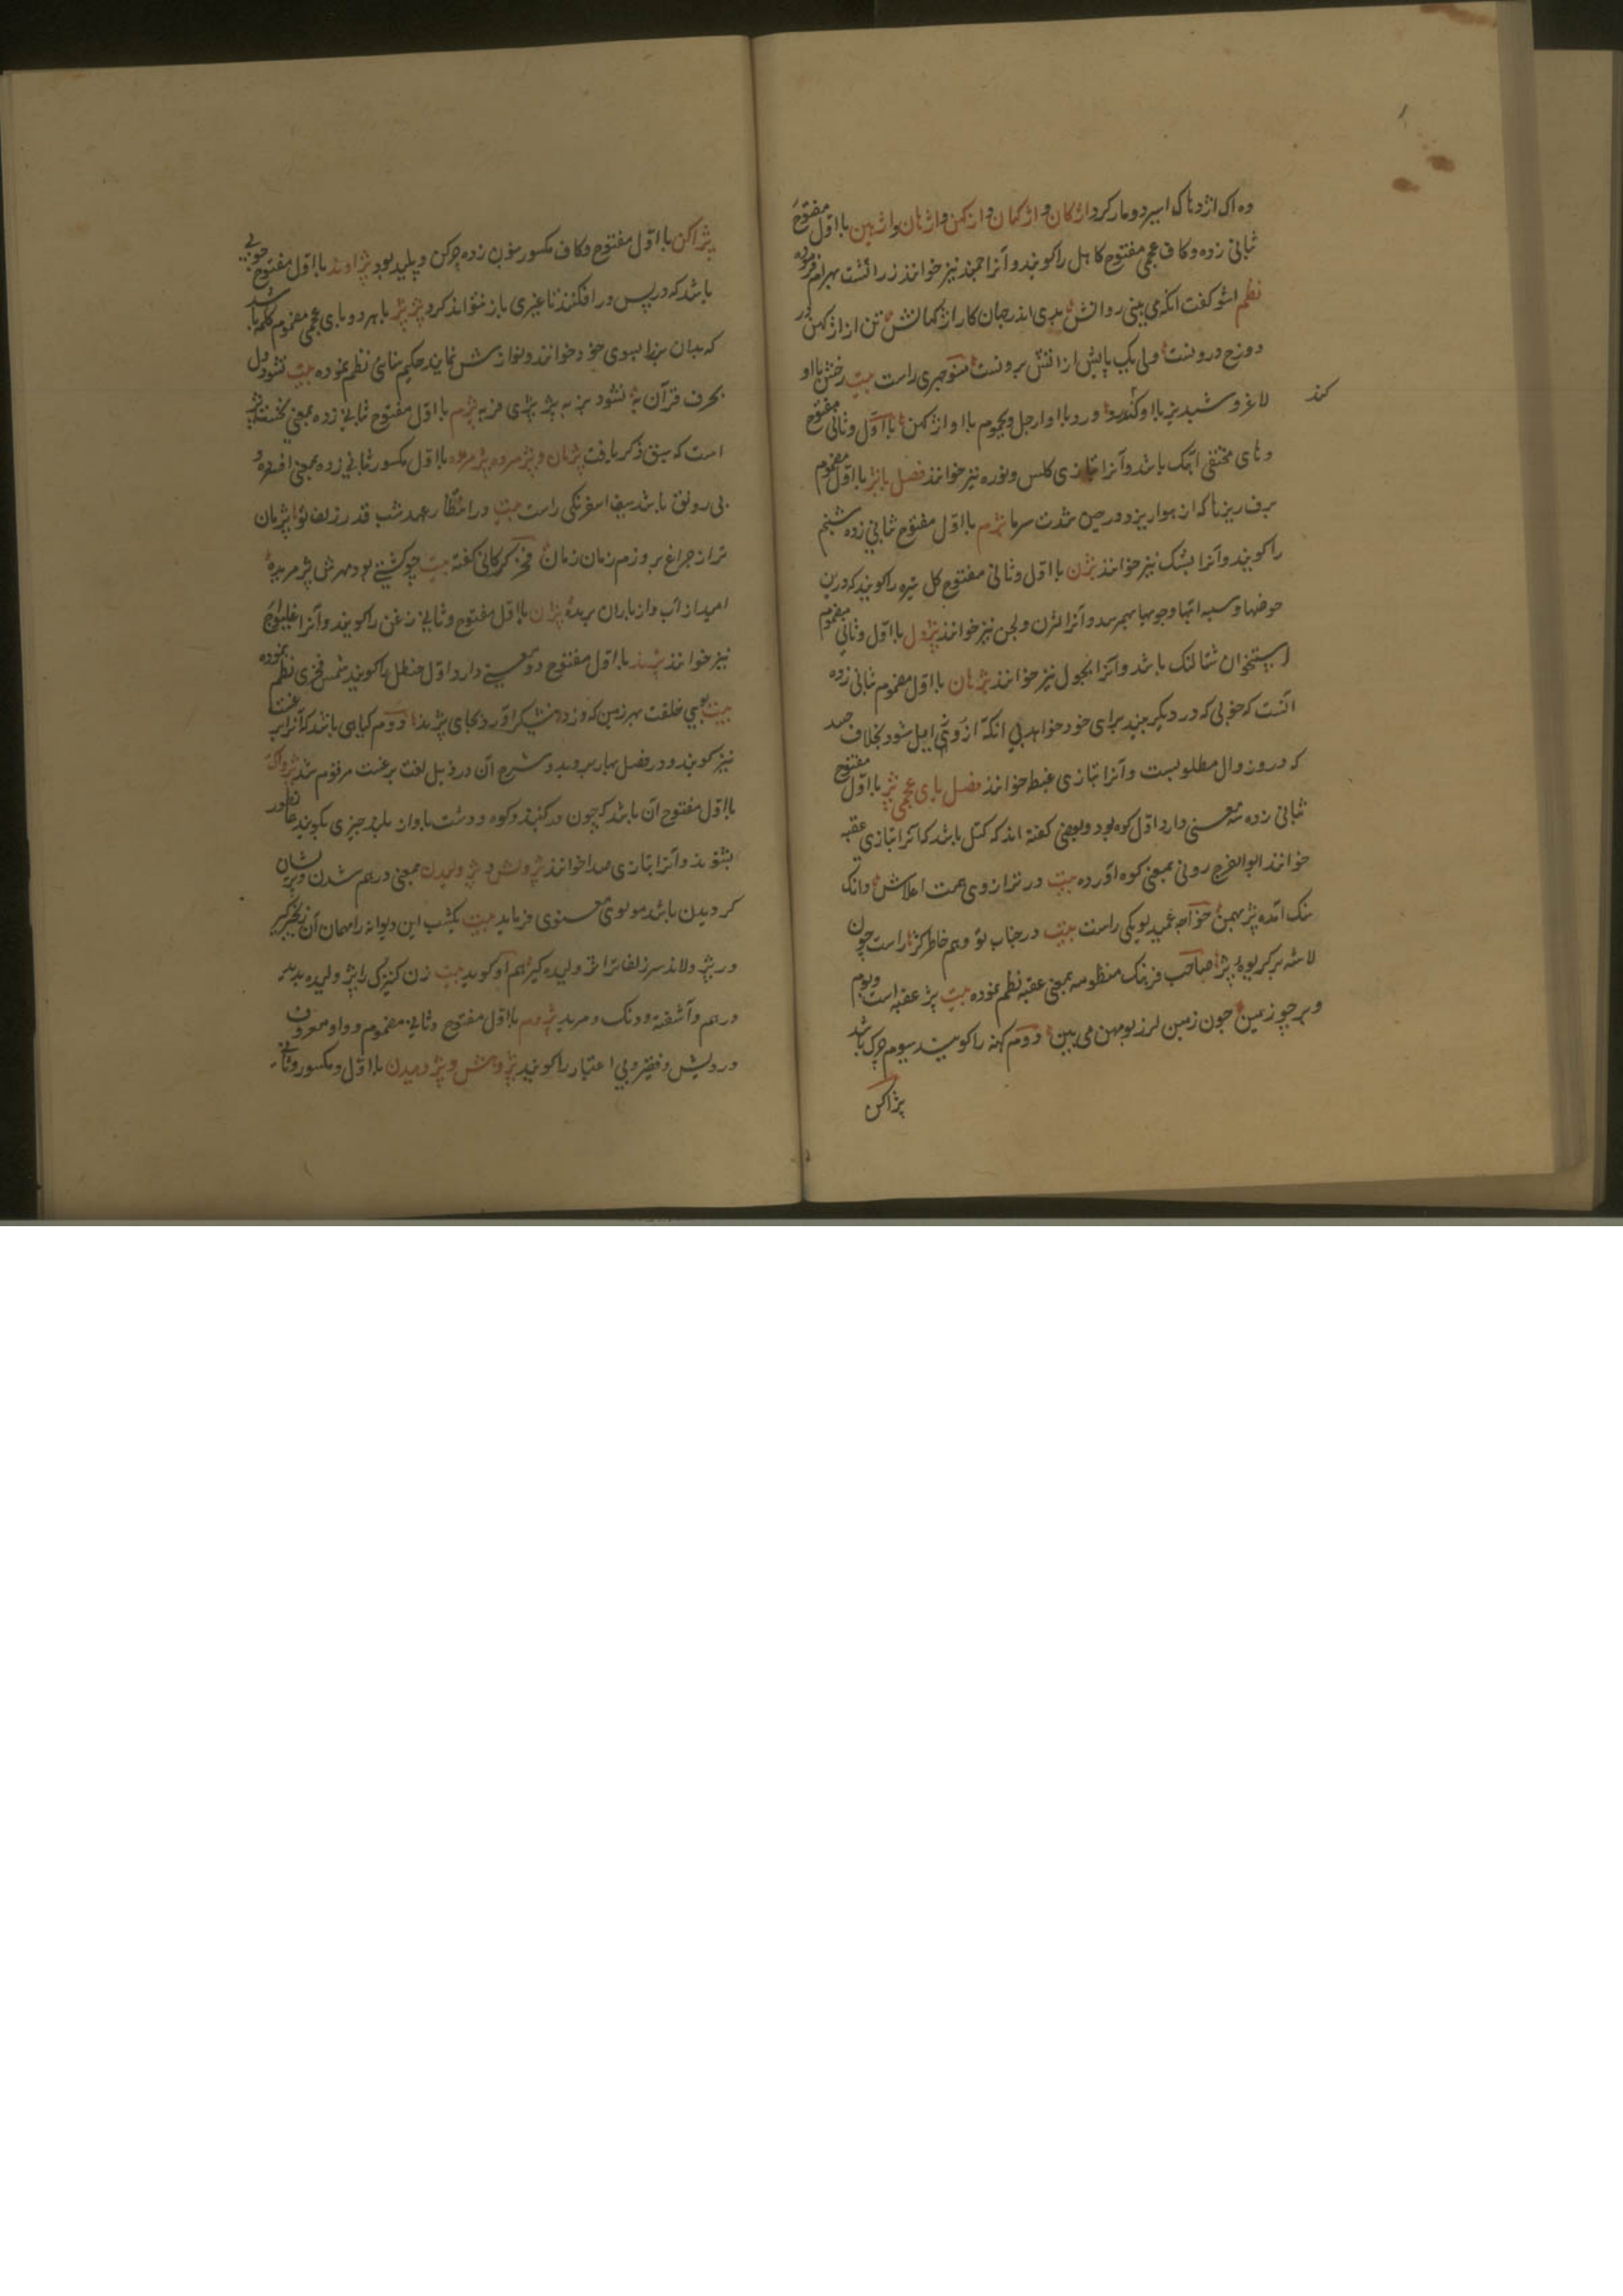 ده اک اژدهاک اسیر دو مار کرد اژکان و اژکهان و اژکهن و اژهان و اژهین با اول مفتوح
ثبانی زده و کاف عجمی مفتوح کاهل را کویند و آنرا نیز خوانند زراتشت بهرام فرموده
نظم اشو کفت انکه می بینی روانش بدی اندر جهان کار اژکهانش تن از اژکهن در
دوزخ درونست ولی یک پایش از آتش برونست منوچهری راست بیت رخش با او
لاغر و شبدیز با او کندرو ورد با او ارجل و یحموم با او اژکهن با اول و ثانی مفتوح
کند
و های مختفی آهک باشد و آنرا بتازی کلس و نوره نیز خوانند فصل با بژ با اول مضموم
برف ریزها که از هوا ریزد در حین شدت سرما بژم با اول مفتوح ثبانی زده شبنم
را کویند و آنرا بشک نیز خوانند بژن با اول و ثانی مفتوح کل تیره را کویند که در بن
حوضها و آنرا لژن و لجن نیز خوانند بژول با اول و ثانی مضموم
استخوان شتالنک باشد و آنرا بجول نیز خوانند بژهان با اول مضموم ثبانی زده
آنست که خوبی که در دیگر بیند برای خود خواهد بی انکه از وی زایل شود بخلاف حسد
که در وزوال مطلوبست و آنرا بتازی غبط خوانند فصل بای عجمی پژ با اول مفتوح
ثبانی زده سه معنی دارد اول کوه بود و بعضی کفته اند که کتل باشد که آنرا بتازی عقبه
خوانند ابو الفرج رونی بمعنی کوه آورده بیت در ترازوی همت اعلاش دانک
سنک آمده پژ بهمن خواجه عمید لویکی راست بیت در جناب تو وهم خاطر کژ راست چون
لاشه بر کریوه پژ صاحب فرهنک منظومه بمعنی عقبه نظم نموده بیت پژ عقبه است و بوم
و بر چو زمین چون زمین لرز بومهن می بین دوم کهنه را کویند سیوم چرک باشد
پژاکن
پژاکن با اول مفتوح و کاف مکسور بنون زده چرکن و پلید بود پژاوند با اول مفتوح چوبی
باشد که در پس در افکنند تا غیری باز نتواند کرد پژ پژ با هر دو بای عجمی مضموم کلمه باشد
که بدان بز را بسوی خود خوانند و نوازش نمایند حکیم سنائی نظم نموده بیت نشود دل
بحرف قرآن به نشود بز به پژ پژی فربه پژم با اول مفتوح ثبانی زده بمعنی نخستین پژ
است که سبق ذکر یافت پژمان و پژمرده پژمرده با اول مکسور ثبانی زده بمعنی افسرده و
بی رونق باشد سیف اسفرنکی راست بیت در انتظار عهد شب قدر زلف تو پژمان
تر از چراغ بروزم زمان زمان فخر کرکانی کفته بیت چو کشتی بود مهرش پژمریده
امید از آب و از باران بریده پژن با اول مفتوح و ثانی زغن را کویند و آنرا غلیواج
نیز خوانند پژند با اول مفتوح دو معنی دارد اول حنظل را کویند شمس فخری نظم نموده
بیت ببوی خلقت بهر زمین که وزد نیشکر آورد بجای پژند دوم کیاهی باشد که آنرا برغست
نیز کویند و در فصل بهار بروید و شرح آن در ذیل لغت برغست مرقوم شد پژواک
با اول مفتوح آن باشد که چون در کنبد و کوه و دشت باواز بلند چیزی بکویند همان طور
بشنوند و آنرا بتازی صدا خوانند پژولش و پژولیدن بمعنی درهم شدن و پریشان
کردیدن باشد مولوی معنوی فرماید بیت یکشب این دیوانه را مهمان آن زنجیر کیر
ور پژولاند سر زلف ترا پژولیده کیر هم او کوید بیت زن کنیزک را پژولیده بدید
درهم و آشفته و دنک و مرید پژوم با اول مفتوح و ثانی مضموم و واو معروف
درویش و فقیر و بی اعتبار را کویند پژوهش و پژوهیدن با اول مکسور و ثانی